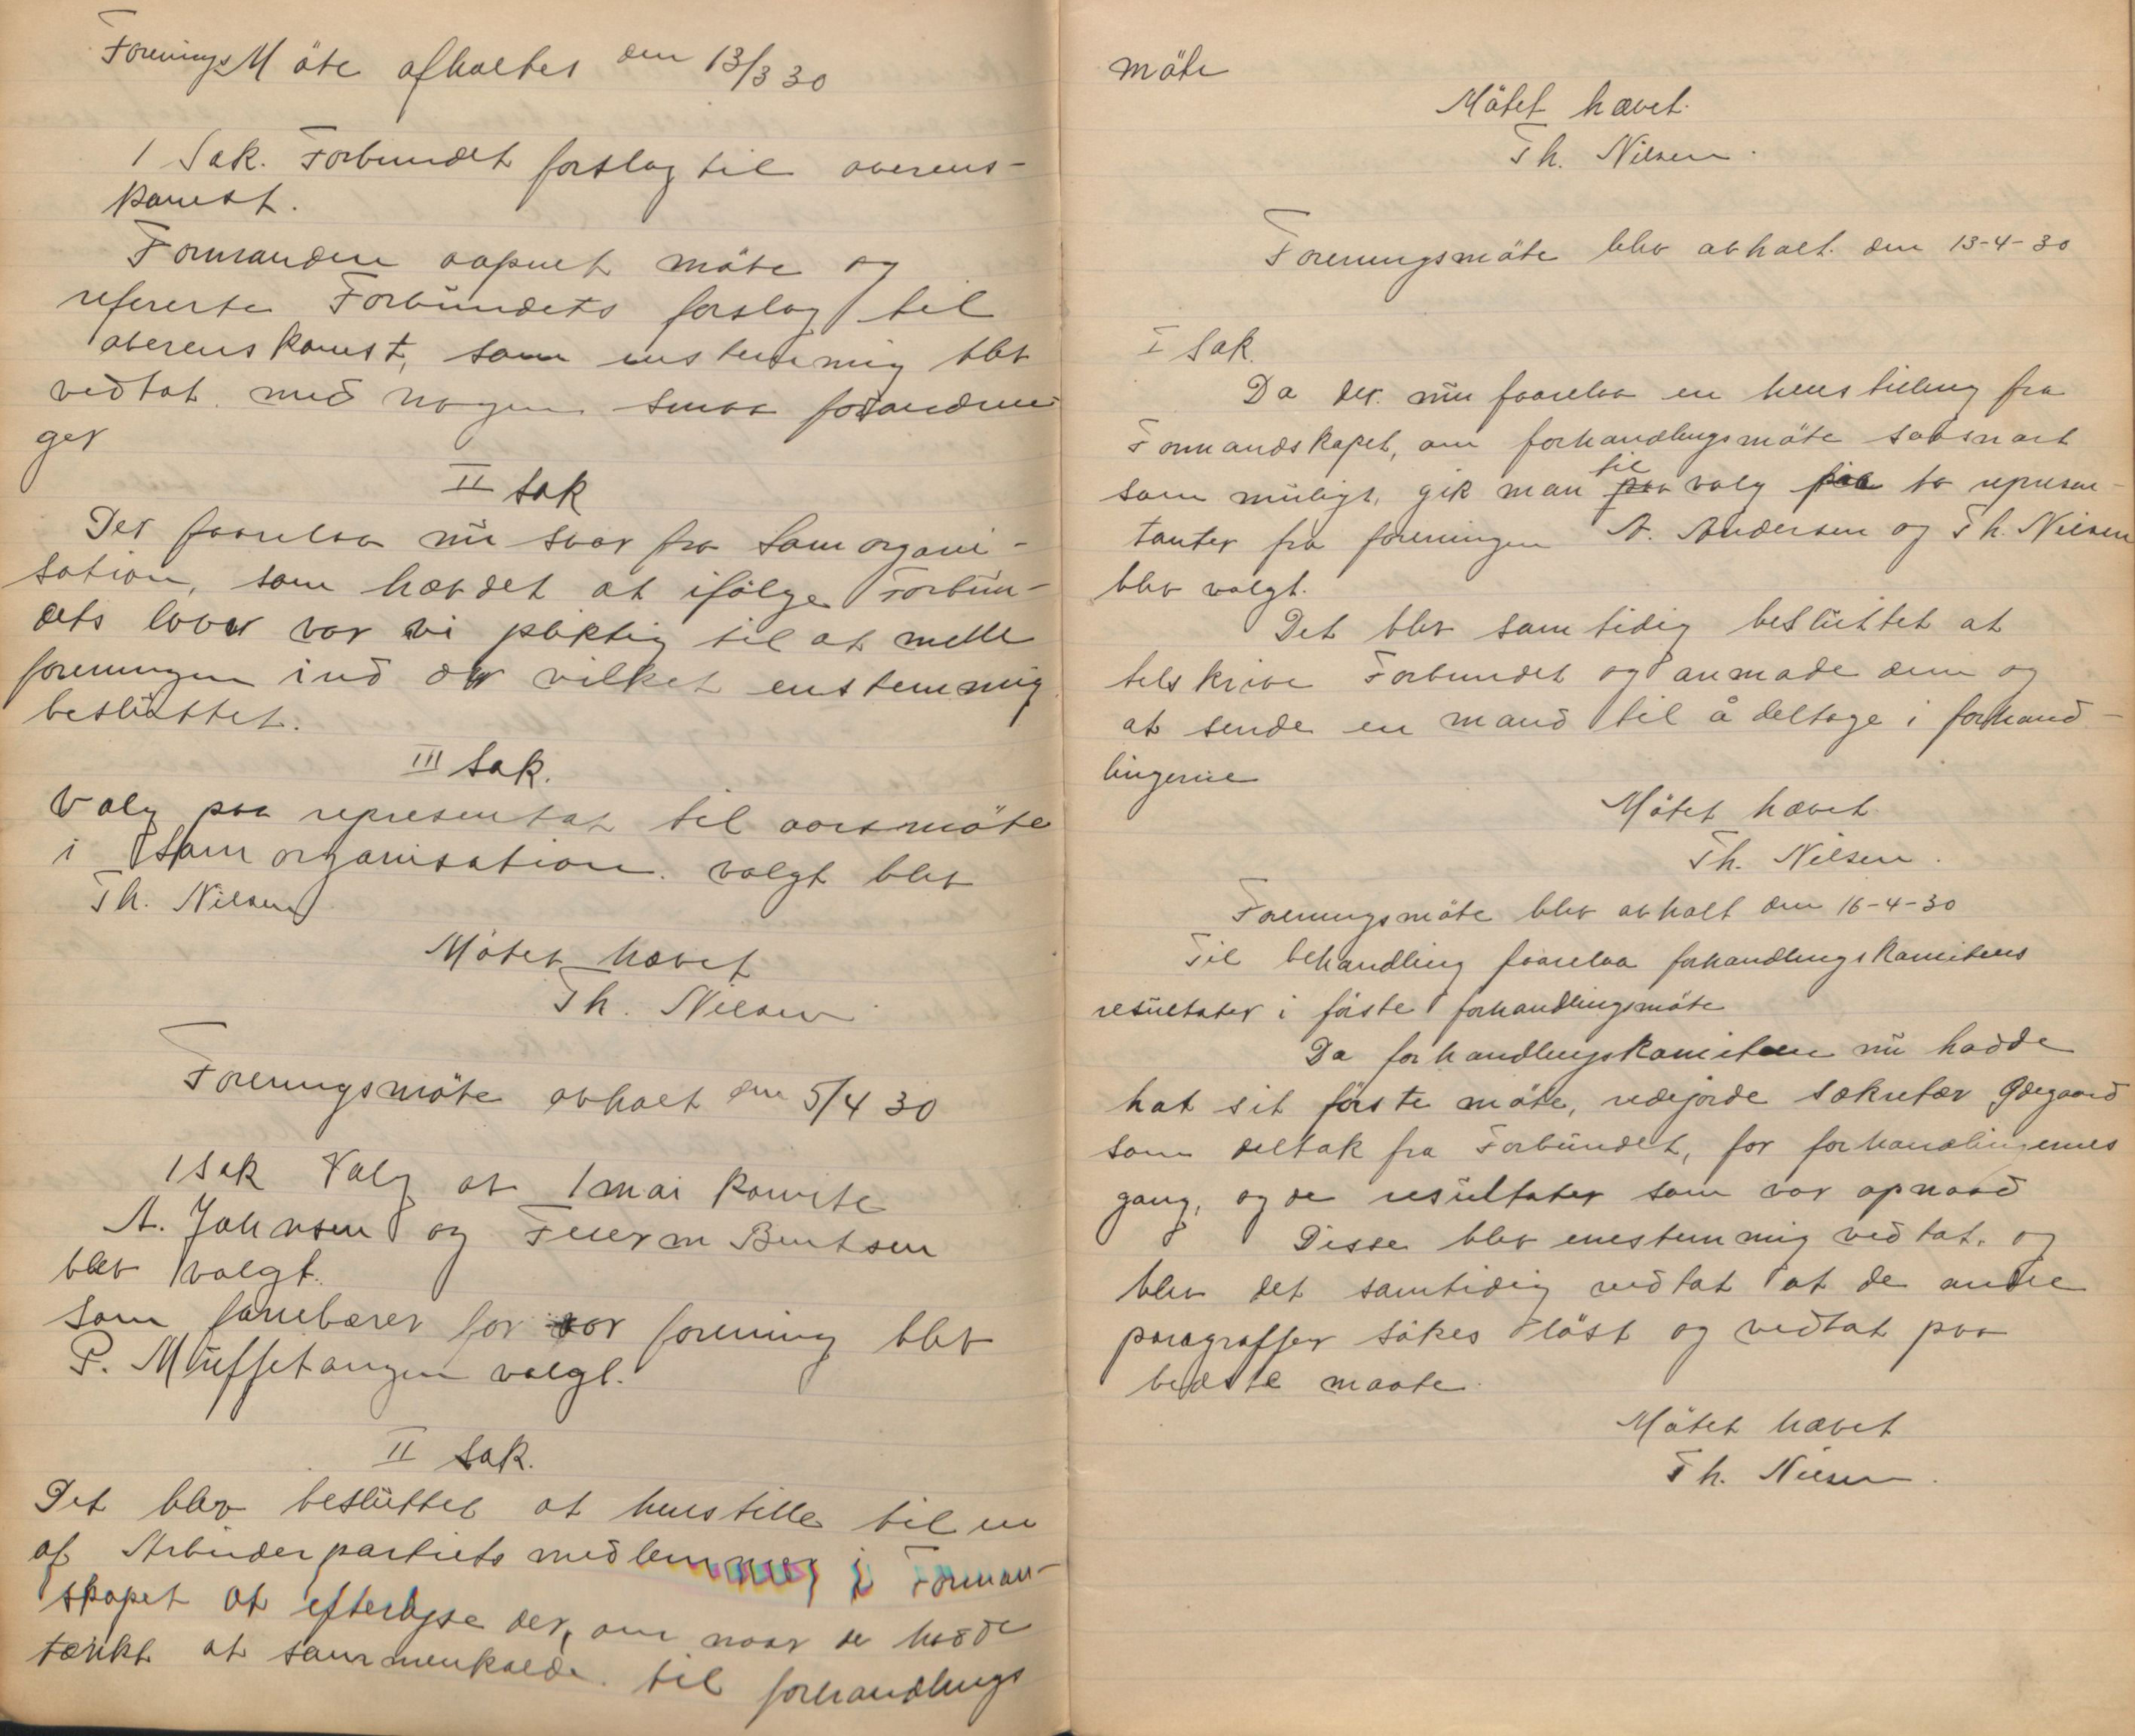 Forenings Möte afholtes den 13/3 30
1 Sak. Forbundet forslag til overens-
komst.
Formanden aapnet möte og
refererte Forbundets forslag til
overenskomst, som enstemmig blev
vedtat med nogen smaa forandrin
ger
II Sak
Der foorelaa nu svar fra Samorgani-
sation, som hævdet at ifölge Forbun-
dets lover var vi pliktig til at melde
foreningen ind der vilket enstemmig
besluttet.
III Sak.
Valg paa representat til aarsmöte
i Samorganisation. valgt blev
Th. Nilsen
Mötet hævet
Th. Nilsen
Foreningsmöte avholt den 5/4 30
1 Sak Valg av 1 mai komite
A. Johnsen og Ferm Bentsen
blev valgt.
Som fanebærer for vor forening blev
P. Muffetangen valgt.
II Sak.
Det blev besluttet at henstille til en
af Arbeiderpartiets medlemmer i Forman-
skapet at efterlyse der, om naar de hadde
tænkt at sammenkalde til forhandlings
möte
Mötet hævet.
Th. Nilsen.
Foreningsmöte blev avholt. den 13-4-30
I Sak.
Da der nu foorelaa en henstilling fra
Formandskapet, om forhandlingsmöte saasnart
som muligt, gik man til valg paa to represen-
tanter fra foreningen A. Andersen og Th. Nilsen
blev valgt.
Det blev samtidig besluttet at
tilskrive Forbundet og anmode dem og
at sende en mand til å deltage i forhand-
lingerne
Mötet hævet
Th. Nilsen.
Foreningsmöte blev avholt den 16-4-30
Til behandling foorelaa forhandlingskomiteens
resultater i förste forhandlingsmöte
Da forhandlingskomiteen nu hadde
hat sit förste möte, redejorde sekretær Ödegaard
som deltok fra Forbundet, for forhandlingernes
gang, og de resultater som var opnaad
Disse blev enestemmig vedtat, og
blev det samtidig vedtat at de andre
paragraffer sökes löst og vedtat paa
bedste maate.
Mötet hævet
Th. Nilsen.